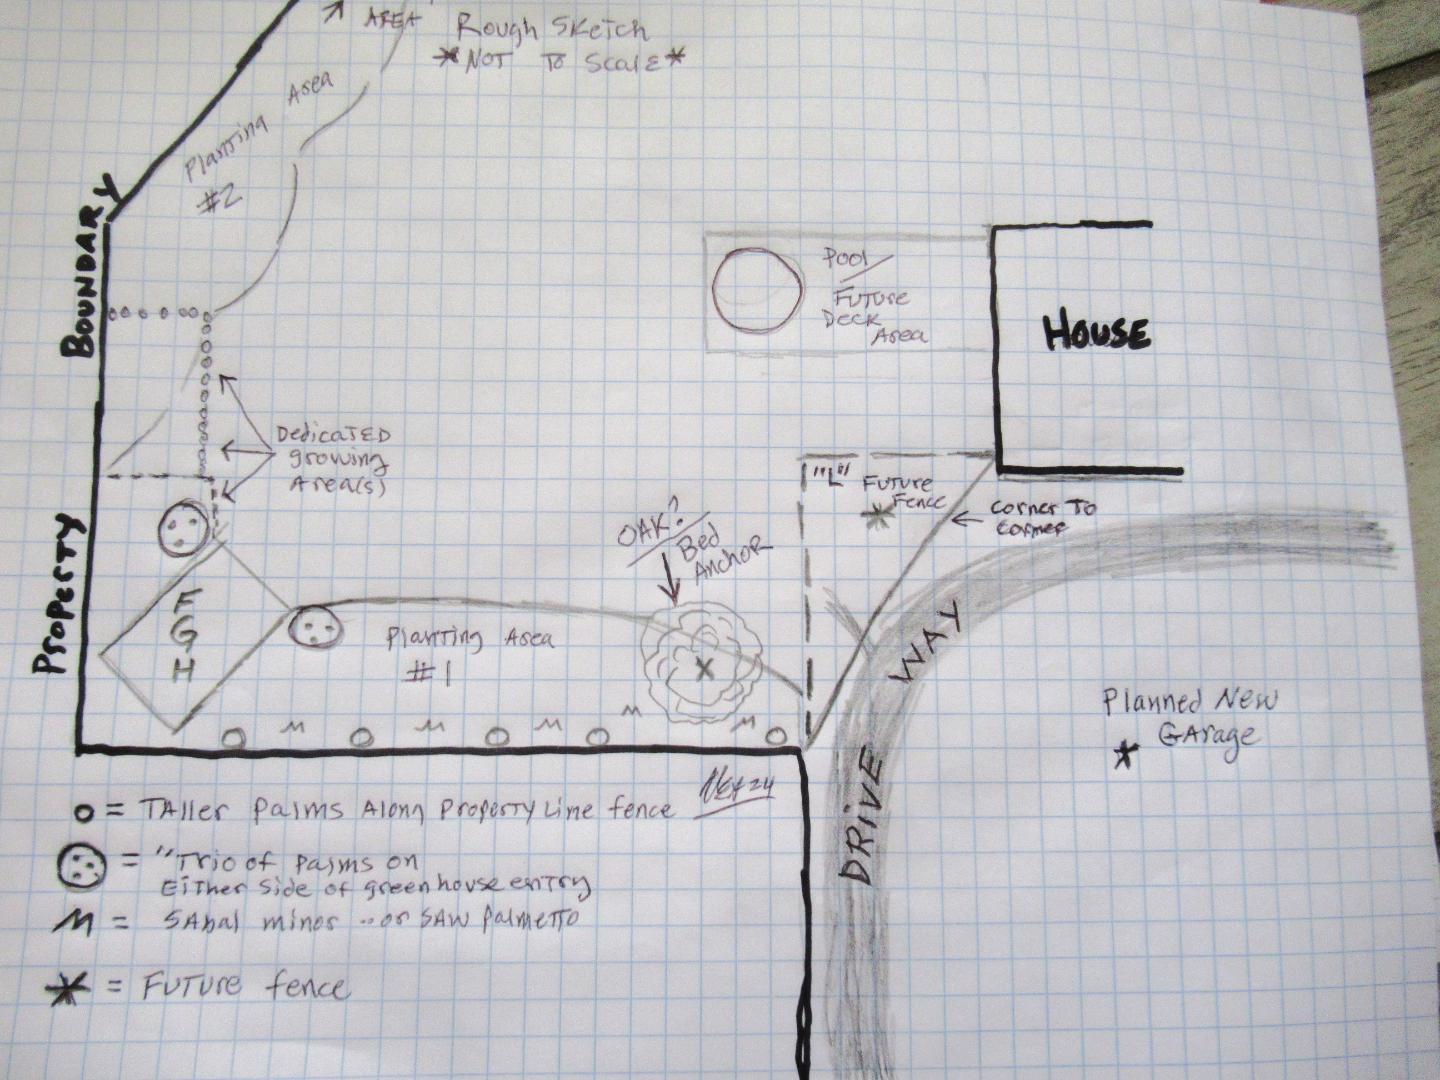 AREA
Rough Sketch
*NOT To Scale*
Planting Area
#2
BOUNDARY
Pool/
Future
Deck
Area
HOUSE
Dedicated
growing
Area(s)
"L"
Future
Fence
Corner To
Corner
OAK?/
Bed
Anchor
PropertY
FGH
Planting Area
#1
DRiVE WAY
Planned New
GArage
O = TAller palms Along Property Line fence
= "Trio of palms on
Either Side of greenhouse entry
M = SAbal minor .. or SAW palmetto
* = Future fence